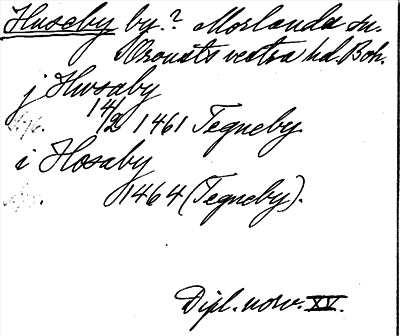 Huseby by.? Morlanda sn.
Orousts vestra hd. Boh.
j Hwsaby
14/12 1461 Tegneby
i Hosaby
1464 (Tegneby).
Dipl. norv. XV.